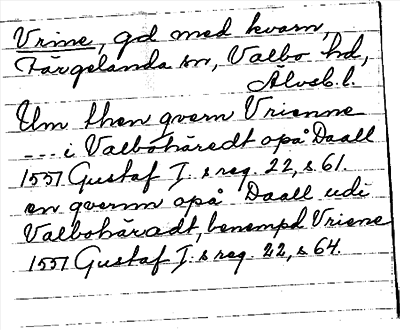 Vrine, gd med kvarn,
Färgelanda sn, Valbo hd,
Älvsb. l.
Um then qvern Vrienne
--- i Valbohäredt opå Daall
1551 Gustaf I. s reg. 22, s 61.
en qvernn opå Daall udi
Valbohäradt, benempd Vriene
1551 Gustaf I. s reg. 22, s 64.